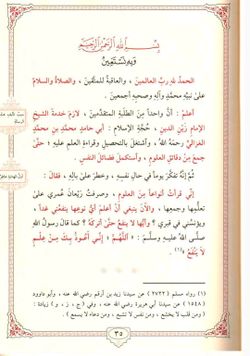 بِسْمِ اللهِ الرَّحْمٰنِ الرَّحِيْمِ
وبه نستعين
الحمدُ للهِ ربِّ العالمينَ، والعاقبةُ للمتَّقينَ، والصلاةُ والسلامُ
على نبيِّه محمَّدٍ وآلِه وصحبِه أجمعينَ.
اعلمْ: أنَّ واحداً منَ الطلبةِ المتقدِّمينَ، لازمَ خدمةَ الشيخِ
الإمامِ زَيْنِ الدينِ، حُجَّةِ الإسلامِ: أبي حامدٍ محمَّدِ بنِ محمدٍ
الغزاليِّ رحمهُ اللهُ، واشتغلَ بالتحصيلِ وقراءةِ العلمِ عليهِ؛ حتَّى
جمعَ مِنْ دقائقِ العلومِ، واستكملَ فضائلَ النفسِ.
ثُمَّ إنَّهُ تفكَّرَ يوماً في حالِ نفسِهِ، وخطرَ على بالِهِ، فقالَ:
إنِّي قرأتُ أنواعاً مِنَ العلومِ، وصرفتُ رَيْعانَ عُمري على
تعلُّمِها وجمعِها، والآنَ ينبغي أنْ أعلمَ أيُّ نوعِها ينفعُني غداً،
ويؤنسُني في قبري؟ وأيُّها لا ينفعُني حتَّى أتركَهُ؟ كما قالَ رسولُ اللهِ
صلَّى اللهُ عليهِ وسلَّمَ: «اللَّهُمَّ؛ إنِّي أعُوذُ بِكَ مِنْ عِلْمٍ
لا يَنْفَعُ»(١)
(١) رواه مسلم (٢٧٢٢) عن سيدنا زيد بن أرقم رضي الله عنه، وأبو داوود
(١٥٤٨) عن سيدنا أبي هريرة رضي الله عنه، وفي (ج، ز، و) زيادة:
(ومن قلب لا يخشع، ومن نفس لا تشبع، ومن دعاء لا يسمع).
٣٥